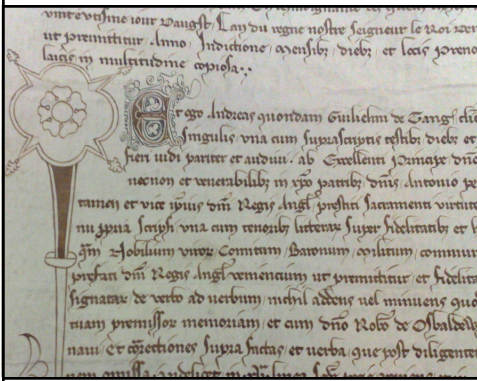 vintevtisme iour Daugst Lan du regne nostre Seigneur le Roi
ut premittitur Anno Indictione Mensibz diebz et locis Preno
laicis in multitudine copiosa
Et ego Andreas quondam Guilielmi de Tang clic
singulis vna cum suprascriptis testibz diebz et
fieri uidi pariter et audiui ab Excellenti Principe dno
necnon et venerabilibz in xpo patribz dnis Antonio
tamen et vice ipius dni Regis Angl prestiti Sacramenti virtute
nu ppria Scripsi vna cum tenoribz litterar super fidelitatibz et
qm Nobilium viror Comitum Baronum
prefati dni Regis Angl venientium ut premittitur et fidelita
signatar de verbo ad verbum nichil addens uel minuens quo
tuam premissor memoriam et cum dno Robto de Osbaldew
naui Et correctiones supra factas et verba que post diligente